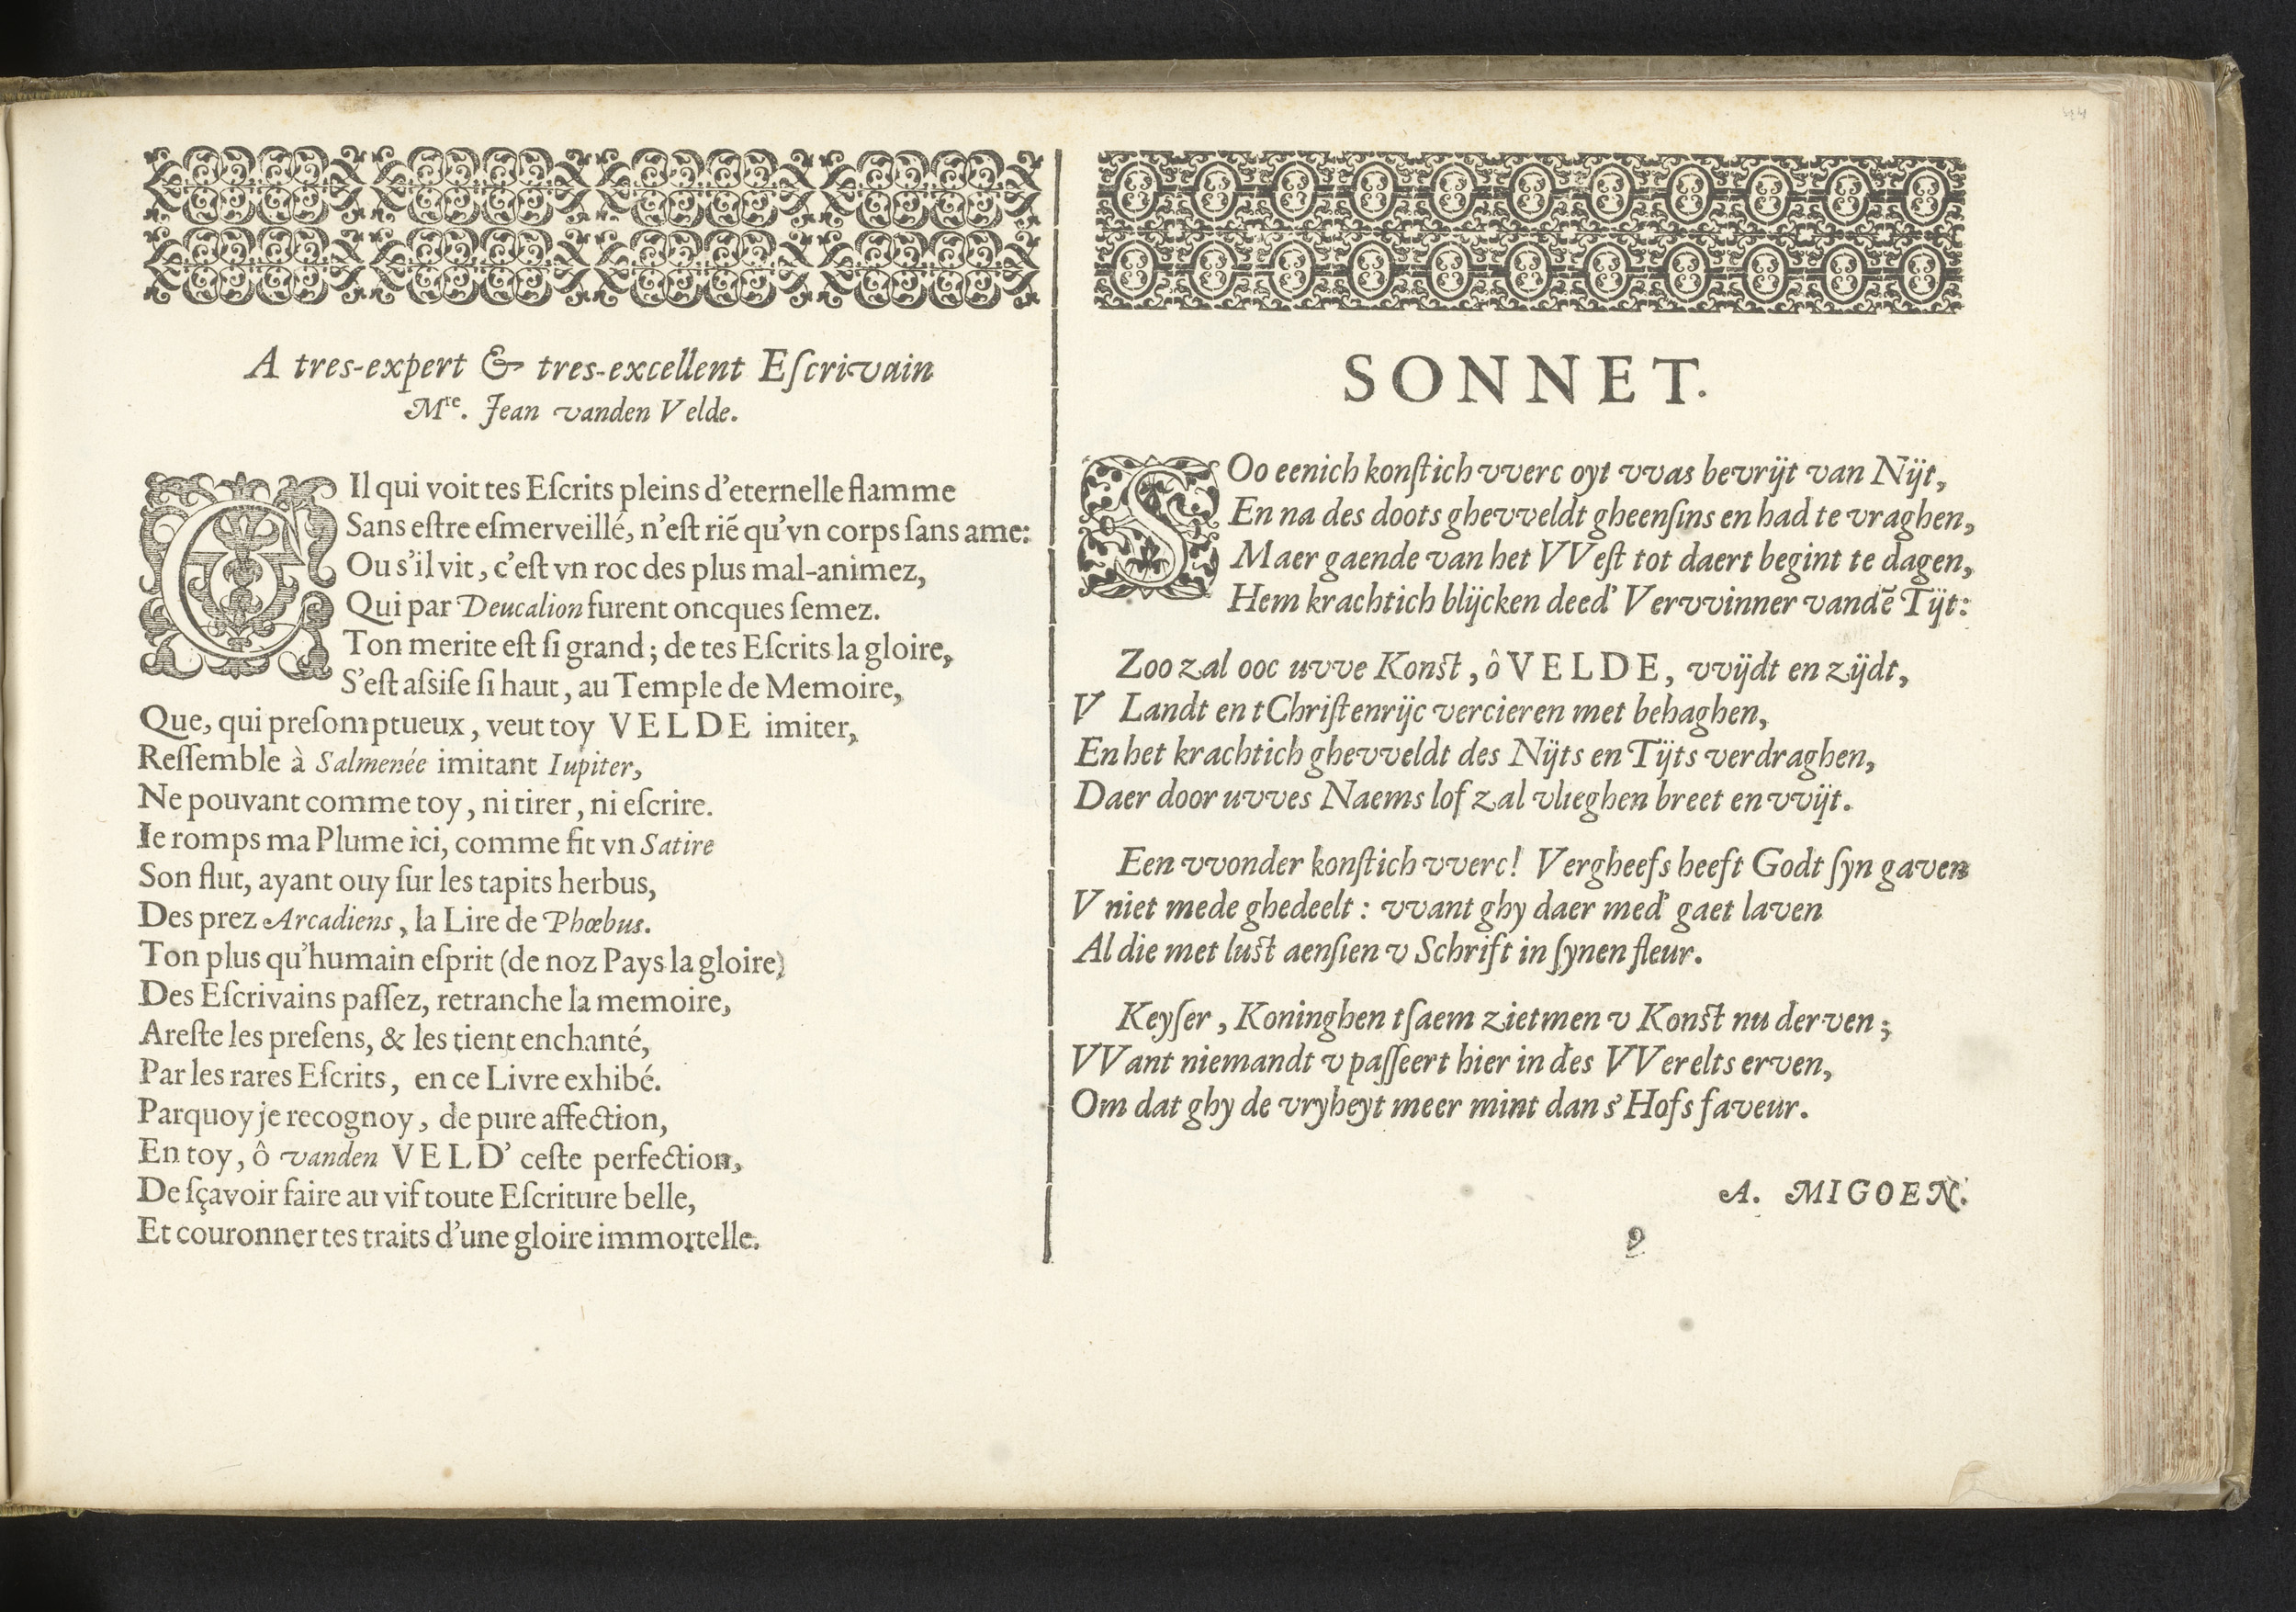 A tres-expert & tres-excellent Eſcrivain
Mre. Jean vanden Velde.
CIl qui voit tes Eſcrits pleins d'eternelle flamme
Sans eſtre eſmerveillé, n'eſt riẽ qu'vn corps ſans ame:
Ou s'il vit, c'eſt vn roc des plus mal-animez,
Qui par Deucalion furent oncques ſemez.
Ton merite eſt ſi grand; de tes Eſcrits la gloire,
S'eſt aſsiſe ſi haut, au Temple de Memoire,
Que, qui preſomptueux, veut toy VELDE imiter,
Reſſemble à Salmenée imitant Iupiter,
Ne pouvant comme toy, ni tirer, ni eſcrire.
Ie romps ma Plume ici, comme fit vn Satire
Son flut, ayant ouy ſur les tapits herbus,
Des prez Arcadiens, la Lire de Phœbus.
Ton plus qu'humain eſprit (de noz Pays la gloire)
Des Eſcrivains paſſez, retranche la memoire,
Areſte les preſens, & les tient enchanté,
Par les rares Eſcrits, en ce Livre exhibé.
Parquoy je recognoy, de pure affection,
En toy, ô vanden VELD' ceſte perfection,
De ſçavoir faire au vif toute Eſcriture belle,
Et couronner tes traits d'une gloire immortelle.
SONNET.
SOo eenich konſtich vverc oyt vvas bevrijt van Nijt,
En na des doots ghevveldt gheenſins en had te vraghen,
Maer gaende van het VVeſt tot daert begint te dagen,
Hem krachtich blijcken deed' Vervvinner vandẽ Tijt:
Zoo zal ooc uvve Konſt, ô VELDE, vvijdt en zijdt,
V Landt en tChriſtenrijc vercieren met behaghen,
En het krachtich ghevveldt des Nijts en Tijts verdraghen,
Daer door uvves Naems lof zal vlieghen breet en vvijt.
Een vvonder konſtich vverc! Vergheefs heeft Godt ſyn gaven
V niet mede ghedeelt: vvant ghy daer med' gaet laven
Al die met luſt aenſien v Schrift in ſynen fleur.
Keyſer, Koninghen tſaem zietmen v Konſt nu derven;
VVant niemandt v paſſeert hier in des VVerelts erven,
Om dat ghy de vryheyt meer mint dan s'Hofs faveur.
A. MIGOEN.